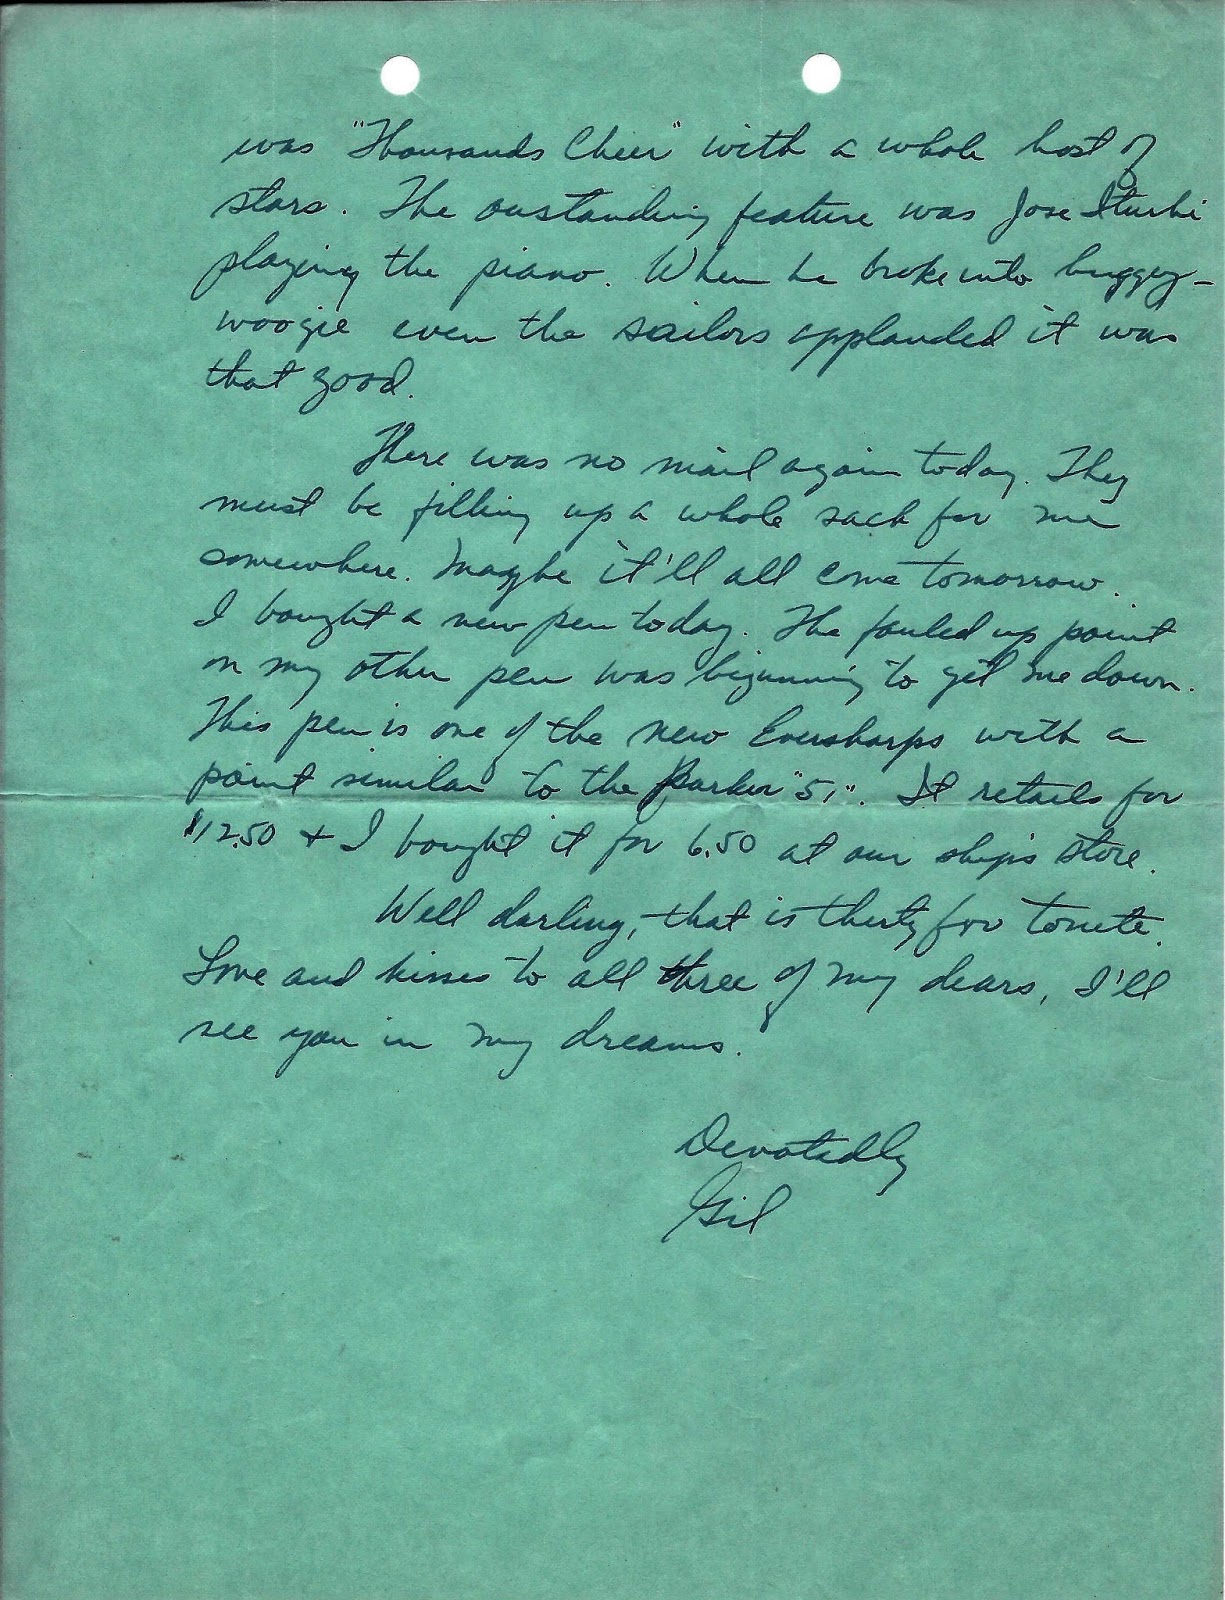 was "Thousands Cheer" with a whole host of
stars. The oustanding feature was Jose Iturbi
playing the piano. When he broke into buggey-
woogie even the sailors applauded it was
that good.
There was no mail again today. They
must be filling up a whole sack for me
somewhere. Maybe it'll all come tomorrow.
I bought a new pen today. The fouled up point
on my other pen was beginning to get me down.
This pen is one of the new Eversharps with a
point similar to the Parker "51". It retails for
$12.50 + I bought it for 6.50 at our ship's store.
Well darling, that is thirty for tonite.
Love and kisses to all three of my dears, I'll
see you in my dreams.
Devotedly
Gil